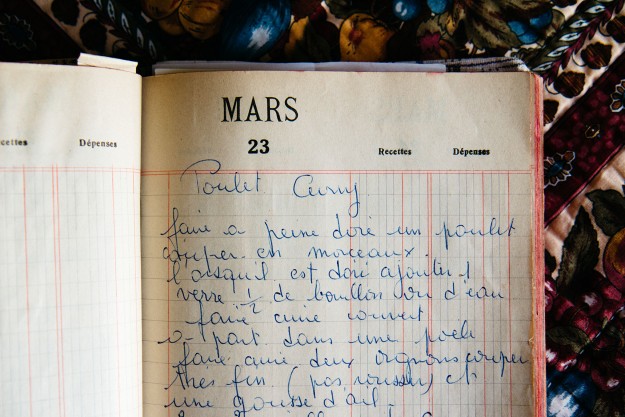 Recettes
Dépenses
MARS
23
Recettes
Dépenses
Poulet Curry
faire a peine doré un poulet
couper en morceaux.
l'orsquil est doré ajouter 1
verre 1/2 de bouillon ou d'eau
faire cuire couvert
a part dans une poele
faire cuire deux oignons couper
très fin (pas roussir) et
une gousse d'ail.